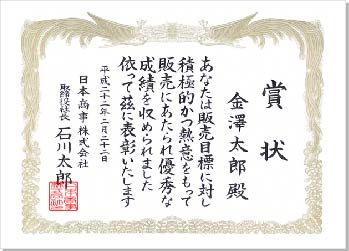 賞状
金澤太郎殿
あなたは販売目標に対し
積極的かつ熱意をもって
販売にあたられ優秀な
成績を収められました
依って茲に表彰いたします
平成二十二年二月二十二日
日本商事株式会社
取締役社長 石川太郎